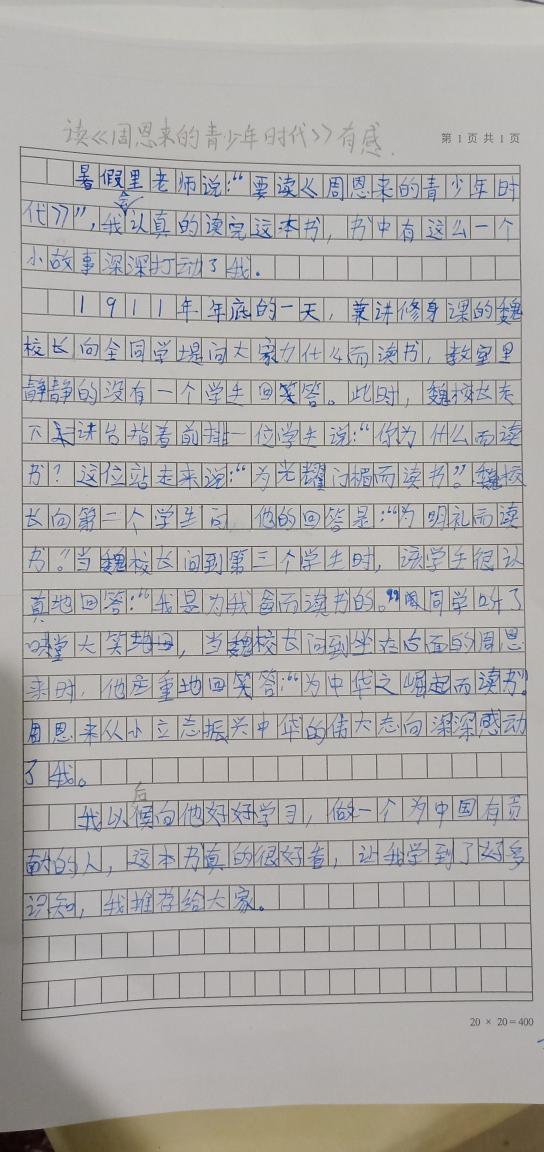 读《周恩来的青少年时代》有感.
第 1 页 共 1 页
暑假里老师说:“要读《周恩来的青少年时
代》”,我认真的读完这本书,书中有这么一个
小故事深深打动了我。
1911年年底的一天,兼讲修身课的魏
校长向全同学提问大家为什么而读书,教室里
静静的没有一个学生回答。此时,魏校长走
下讲台指着前排一位学生说:“你为什么而读
书?这位站走来说:“为光耀门楣而读书”。魏校
长向第二个学生问,他的回答是:“为明礼而读
书。”当魏校长问到第三个学生时,该学生很认
真地回答:“我是为我爸而读书的。”同学听了
堂大笑,当魏校长问到坐在后面的周恩
来时,他严重地回答:“为中华之崛起而读书”。
周恩来从小立志振兴中华的伟大志向深深感动
了我。
我以后向他好好学习,做一个为中国有贡
献的人,这本书真的很好看,让我学到了好多
识知,我推荐给大家。
20 × 20=400